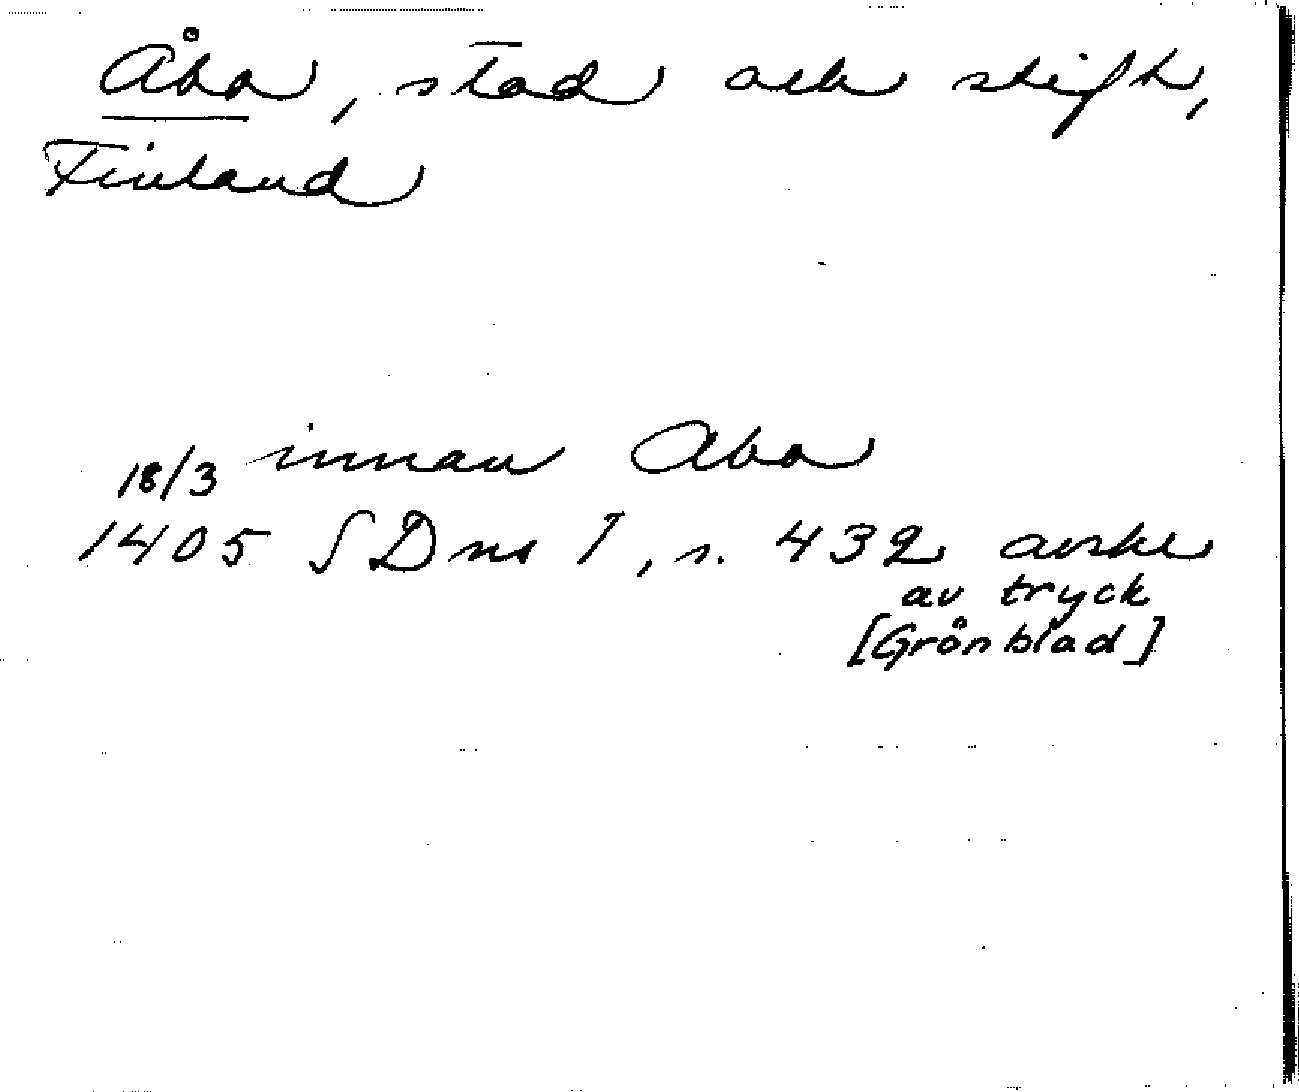 Åbo, stad och stift,
Finland
innan Abo
18/3
1405 SDns 1, s. 432 avskr
av tryck
[Grönblad]